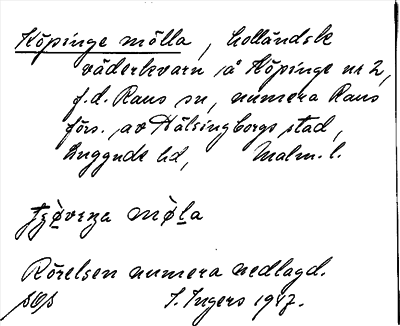 Köpinge mölla, holländsk
väderkvarn på Köpinge nr 2,
f.d. Raus sn, numera Raus
förs. av Hälsingborgs stad,
Luggude hd, Malm. l.
möla
Rörelsen numera nedlagd.
I. Ingers 1947.